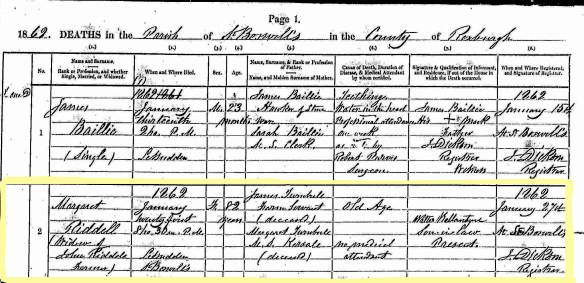 Page 1.
1862. DEATHS in the Parish of St Boswell's in the County of Roxburgh
No.
Name and Surname.
Rank or Profession, and whether
Single, Married, or Widowed.
When and Where Died.
Sex.
Age.
Name, Surname, & Rank or Profession
of Father.
Name, and Maiden Surname of Mother.
Cause of Death, Duration of
Disease, & Medical Attendant
by whom certified.
Signature & Qualification of Informant,
and Residence, if out of the House in
which the Death occurred.
When and Where Registered,
and Signature of Registrar.
1
James
Baillie
(Single)
1862
January
thirteenth
2 ho. P.M.
Lessudden
M.
23
months
James Baillie
Hawker of Stone
ware
Sarah Baillie
M. S. Clerk
Teething
Water in the head
one week
as cert. by
Robert
Surgeon
James Baillie
His + Mark
Father
J. Dickson
Registrar
Witness
1862
January 15th
At St Boswell's
J. Dickson
Registrar
2
Margaret
Riddell
(Widow of
John Riddell
1862
January
twenty first
8 ho. 30 m. P.M.
Lessudden
St Boswell's
F.
82
years
James Turnbull
Farm Servant
(deceased)
Margaret Turnbull
M. S.
(deceased)
Old Age
no medical
attendant
Walter Ballantyne
Son in law
Present
1862
January 27th
At St Boswell's
J. Dickson
Registrar